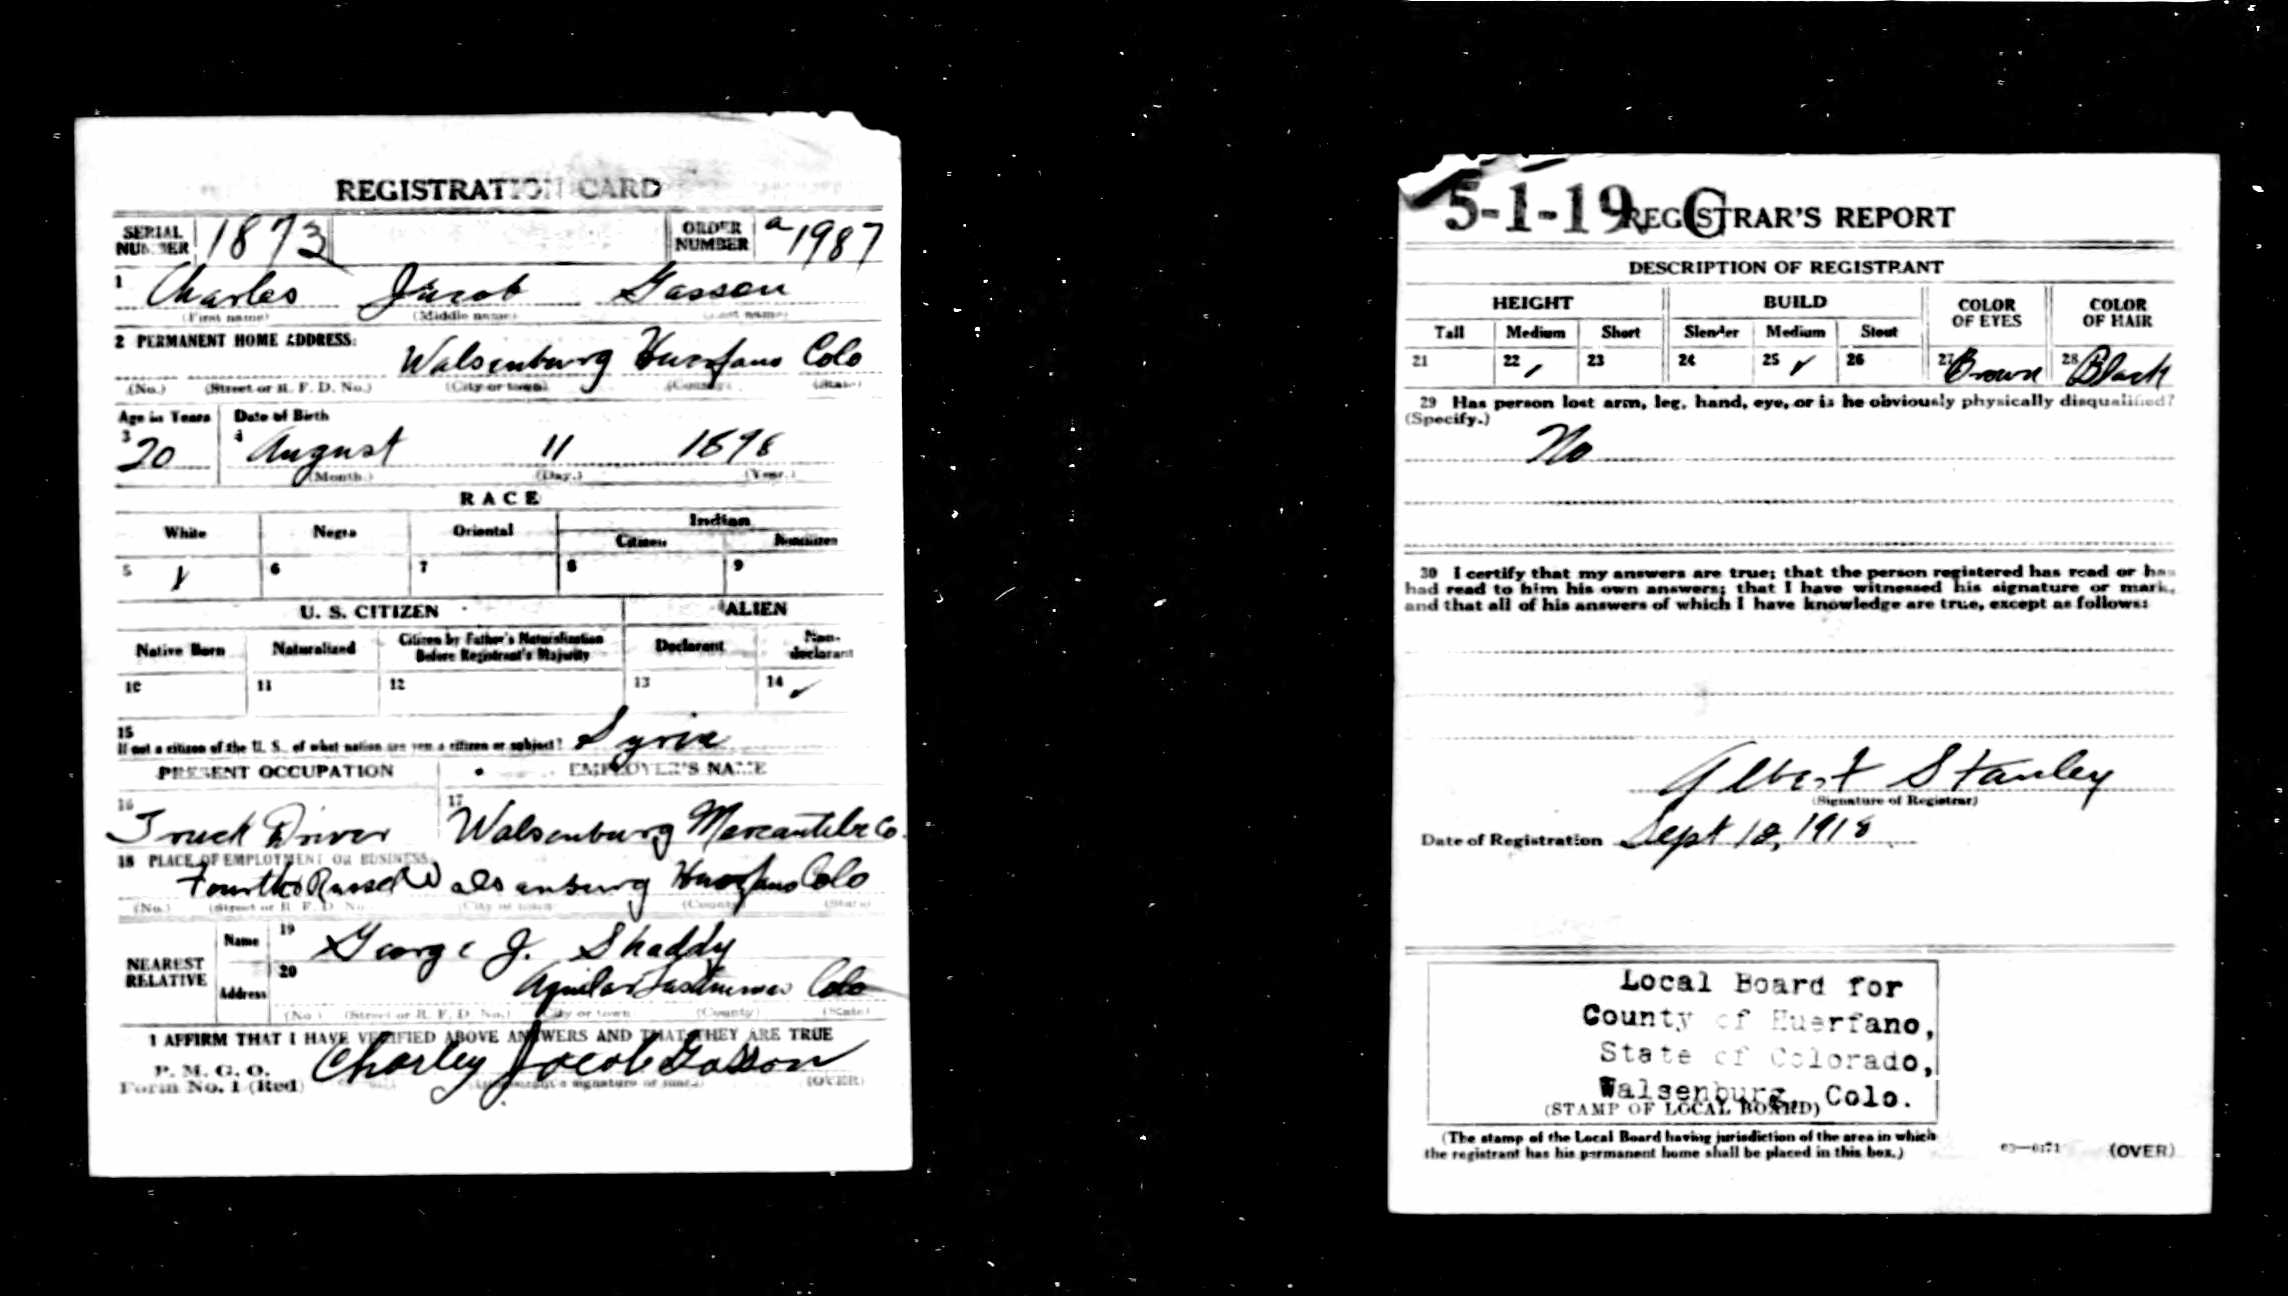 REGISTRATION CARD
SERIAL NUMBER 1873 ORDER NUMBER a 1987
1 Charles Jacob Gasson
(First name) (Middle name) (Last name)
2 PERMANENT HOME ADDRESS:
Walsenburg Huerfano Colo
(No.) (Street or R. F. D. No.) (City or town) (County) (State)
Age in Years Date of Birth
3 20 4 August 11 1898
(Month.) (Day.) (Year.)
RACE
White Negro Oriental Indian
Citizen Noncitizen
5 ✓ 6 7 8 9
U. S. CITIZEN ALIEN
Native Born Naturalized Citizen by Father's Naturalization Before Registrant's Majority Declarant Non-declarant
10 11 12 13 14 ✓
15
If not a citizen of the U. S., of what nation are you a citizen or subject? Syria
PRESENT OCCUPATION EMPLOYER'S NAME
16 Truck Driver 17 Walsenburg Mercantile Co.
18 PLACE OF EMPLOYMENT OR BUSINESS:
Fourth & Russel Walsenburg Huerfano Colo
(No.) (Street or R. F. D. No.) (City or town) (County) (State)
NEAREST RELATIVE
Name 19 George J. Shaddy
Address 20 Aguilar Las Animas Colo
(No.) (Street or R. F. D. No.) (City or town) (County) (State)
I AFFIRM THAT I HAVE VERIFIED ABOVE ANSWERS AND THAT THEY ARE TRUE
P. M. G. O.
Form No. 1 (Red) Charley Jacob Gasson
(Registrant's signature or mark) (OVER)
5-1-19. C REGISTRAR'S REPORT
DESCRIPTION OF REGISTRANT
HEIGHT BUILD COLOR OF EYES COLOR OF HAIR
Tall Medium Short Slender Medium Stout
21 22 ✓ 23 24 25 ✓ 26 27 Brown 28 Black
29 Has person lost arm, leg, hand, eye, or is he obviously physically disqualified?
(Specify.)
No
30 I certify that my answers are true; that the person registered has read or has
had read to him his own answers; that I have witnessed his signature or mark,
and that all of his answers of which I have knowledge are true, except as follows:
Albert Stanley
(Signature of Registrar)
Date of Registration Sept 12, 1918
Local Board for
County of Huerfano,
State of Colorado,
Walsenburg, Colo.
(STAMP OF LOCAL BOARD)
(The stamp of the Local Board having jurisdiction of the area in which
the registrant has his permanent home shall be placed in this box.)
03—6171 (OVER)